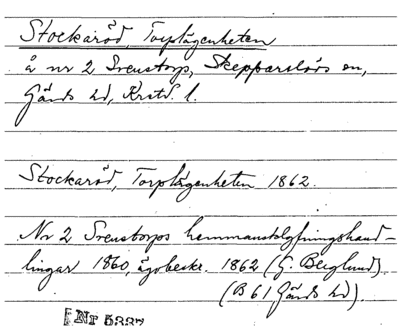 Stockaröd, Torplägenheten
å nr 2 Svenstorp, Skepparslövs sn,
Gärds hd, Krstd. l.
Stockaröd, Torplägenheten 1862.
Nr 2 Svenstorps hemmansklyfningshand-
lingar 1860, ägobeskr. 1862 (G. Berglund).
(B 61 Gärds hd).
Nr